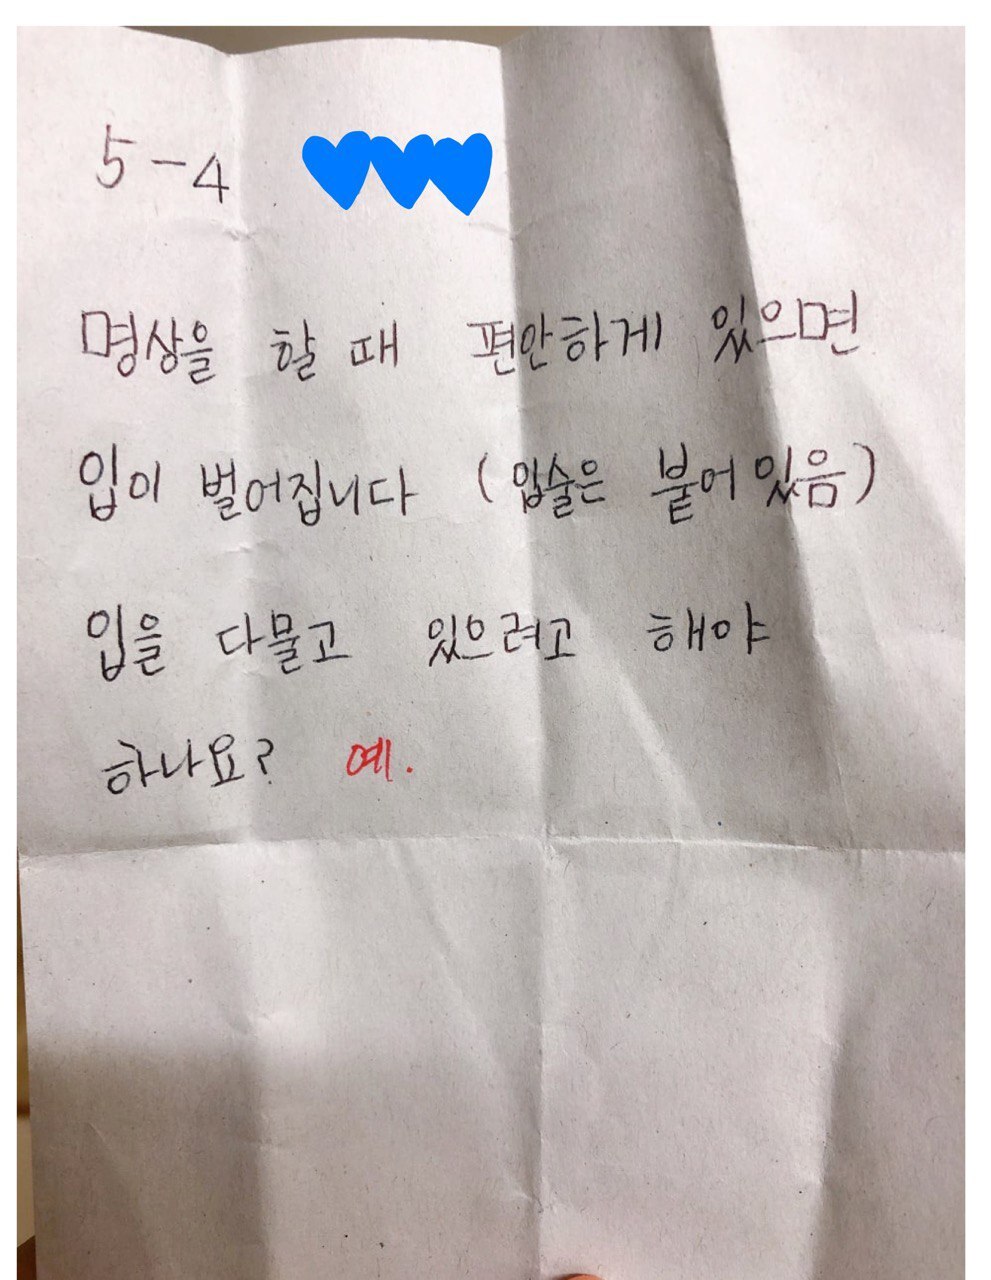 5-4
명상을 할 때 편안하게 있으면
입이 벌어집니다 (입술은 붙어있음)
입을 다물고 있으려고 해야
하나요? 예.